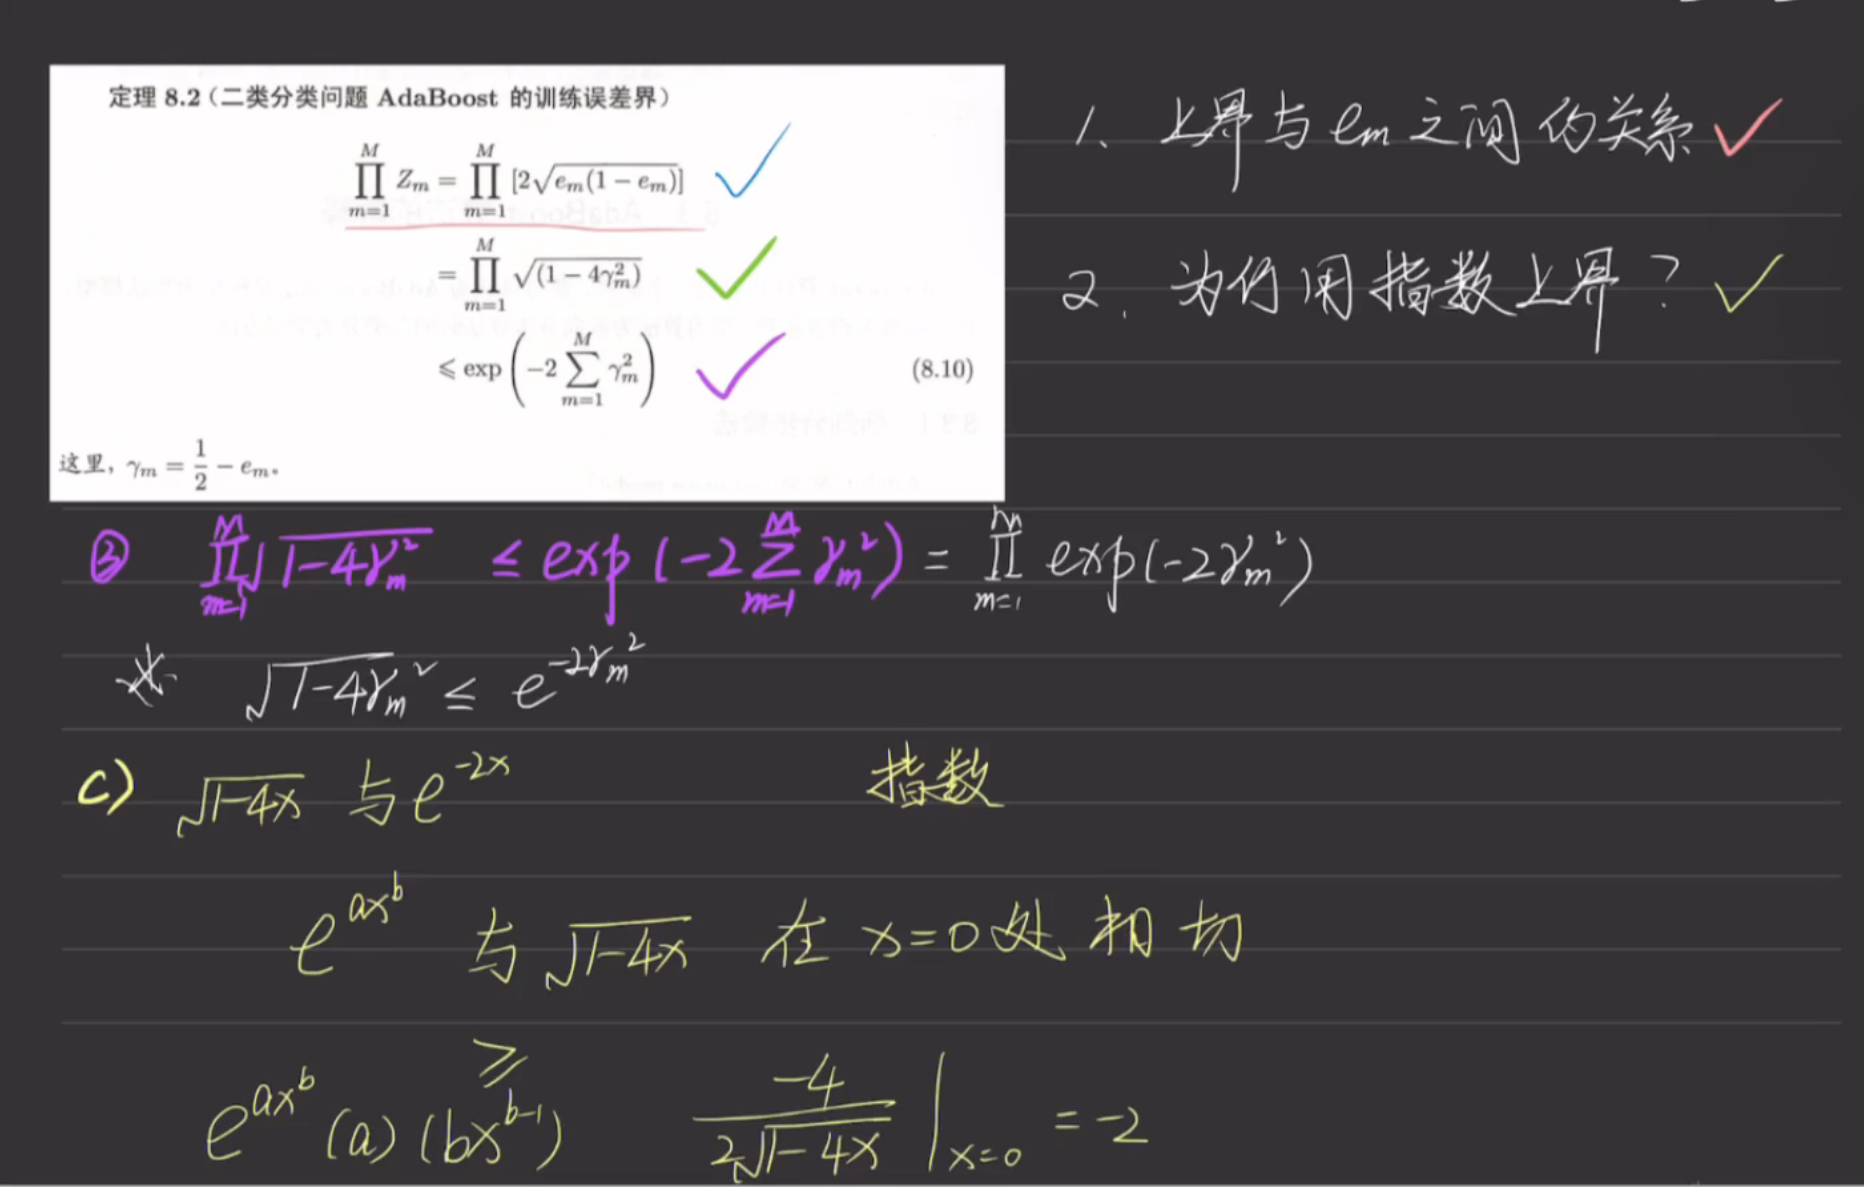 定理 8.2（二类分类问题 AdaBoost 的训练误差界）
∏_{m=1}^{M} Z_m = ∏_{m=1}^{M} [2√(e_m(1 − e_m))]
= ∏_{m=1}^{M} √(1 − 4γ_m^2)
⩽ exp(−2 ∑_{m=1}^{M} γ_m^2) (8.10)
这里，γ_m = 1/2 − e_m。
1、上界与 e_m 之间的关系
2. 为何用指数上界？
③ ∏_{m=1}^{M} √(1−4γ_m^2) ≤ exp(−2 ∑_{m=1}^{M} γ_m^2) = ∏_{m=1}^{M} exp(−2γ_m^2)
√(1−4γ_m^2) ≤ e^{−2γ_m^2}
C) √(1−4x) 与 e^{−2x} 指数
e^{ax^b} 与 √(1−4x) 在 x=0 处 相切
≥
e^{ax^b} (a) (bx^{b−1}) −4/(2√(1−4x)) |_{x=0} = −2